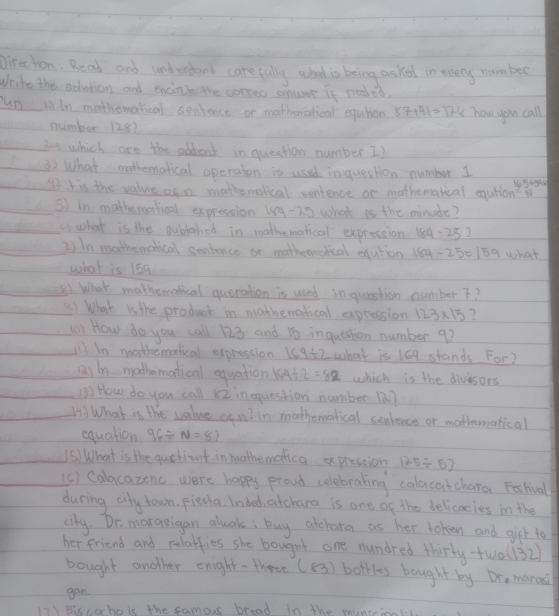 Direction. Read and understand carefully what is being asked in every number
Write the solution and encircle the correc answer if needed.
1) In mathematical sentence or mathematical eqution 87+41=128 how you call
number 128?
2) which are the addent in question number 1?
3) What mathematical operation is used in question number 1
4) it is the value of n mathematical sentence or mathematical eqution
5) In mathematical expression 184-25 what is the minude?
what is the subtahed in mathematical expression 184-25?
7) In mathematical sentence or mathematical eqution 184-25=159 what
what is 159
8) What mathematical queration is used in question number 7?
9) What is the product in mathematical expression 123x15?
10) How do you call 123 and 15 in question number 9?
11) In mathematical expression 164÷2 what is 164 stands For?
12) In mathematical equation 164÷2=82 which is the divisors
13) How do you call 82 in question number 12?
14) What is the value of n? in mathematical sentence or mathematical
equation 96÷N=8?
15) What is the quetient in mathematica expression 125÷5?
16) Calacazenc were happy proud celebrating calacatchara Festival
during city town. fiesta. Inded, atchara is one of the delicacies in the
city. Dr. marasigan aluak: buy atchara as her token and gift to
her friend and relatfies she bought one hundred thirty-two (132)
bought another enight-three (83) bottles bought by Dr. marasi
gan.
17) is the famous bread in the